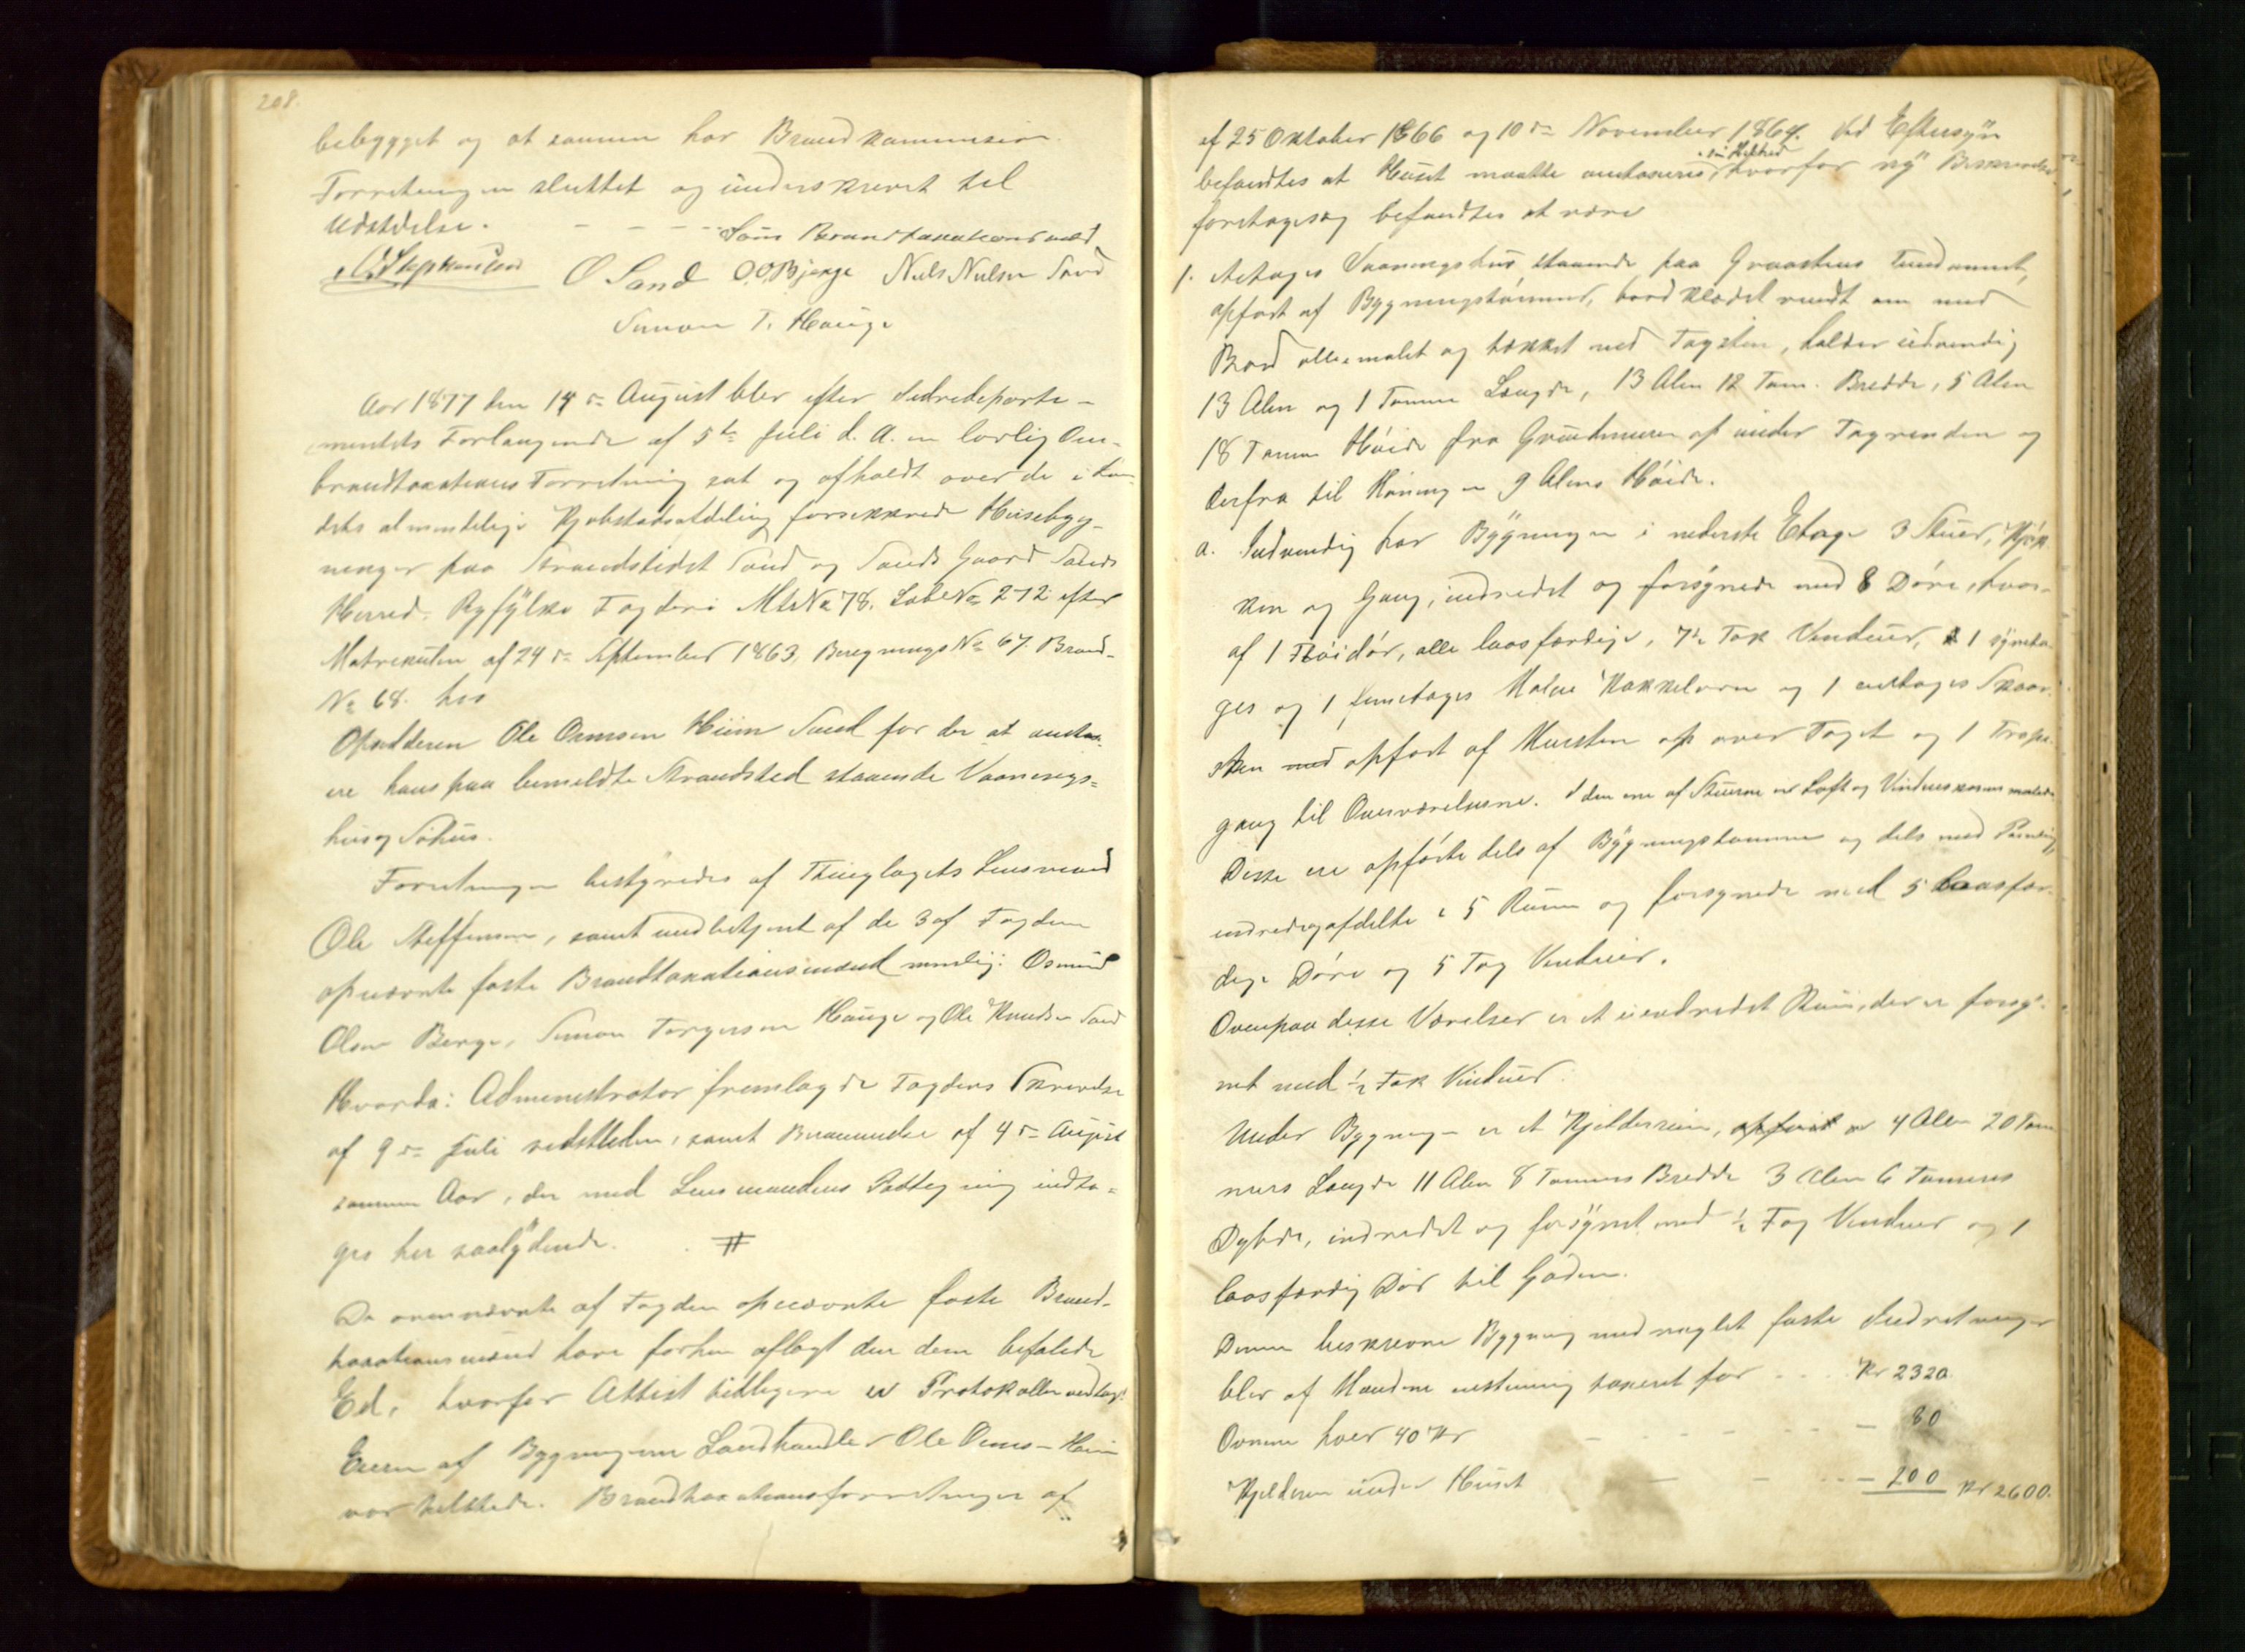 208.
bebygget og at samme har Brandkommision
Forretningen sluttet og underskrevet til
Udstedelse. - - - - Som Brandtaxationsmænd
O Sand O.O.Bjerge Niels Nielsen Sand
Simon T. Hauge
Aar 1877 den 14de August blev efter Indredeparte-
mentets Forlangende af 5te Juli d. A. en lovlig Om-
brandtaxations Forretning sat og afholdt over de i Lan-
dets almindelige Kjøbstadsafdeling forsikkrede Husebyg-
ninger paa Strandstedet Sand og Sands Gaard Sands
Herred, Ryfylke Fogderi Mtr No 78. Løbe No 272 efter
Matrikulen af 24de September 1863, Beregnings No 67. Brand-
No 68. hos
Opsidderen Ole Osmsen Heim Sand for der at omtax-
ere hans paa bemeldte Strandsted staaende Vaanings-
hus og Søhus.
Forretningen bestyredes af Thinglagets Lensmand
Ole Steffensen, samt medbetjent af de 3 af Fogden
opnævnte faste Brandtaxationsmænd nemlig: Osmund
Olsen Berge, Simon Torgersen Hauge og Ole Knudsen Sand
Hvorda: Administrator fremlagde Fogdens Skrivelse
af 9de Juli sidstleden, samt Berammelse af 4de August
samme Aar, der med Lensmandens Paategning indta-
ges her saalydende. #
De ovennævnte af Fogden opnævnte faste Brand-
taxationsmænd have forhen aflagt den dem befalede
Ed, hvorfor Attest tidligere er Protokollen vedlagt.
Eieren af Bygningerne Landhandler Ole Osms- Heim
var tilstede. Brandtaxationsforretninger af
af 25 Oktober 1866 og 10de November 1869. Ved Eftersyn
befandtes at Huset maatte omtaxeres i sin Helhed, hvorfor ny Beskrivelse
foretoges og befandtes at være
1. Vaaningshus staaende paa Graasteens Fundament,
opført af Bygningstømmer, bordklædet rundt om med
Bord oliemalet og tækket med Tagsten, holder udvendig
13 Alen og 1 Tomme Længde, 13 Alen 12 Tom. Bredde, 5 Alen
18 Tomm Høide fra Grundmuren op under Tagrenden og
derfra til Røningen 9 Alens Høide.
a. Indvendig har Bygningen i nederste Etage 3 Stuer, Kjøk-
ken og Gang, indredet og forsynede med 8 Døre, hvor-
af 1 Fløidør, alle laasfærdige, 7½ Fak Vinduer, 1
ges og 1 Kakkelovn og 1 Skaar-
sten med opført af Mursten op over Taget og 1 Trappe-
gang til Overværelserne. I den ene af Stuerne er Loft og malede
Disse ere opførte dels af Bygningstømmer og dels med
indredet og afdelte i 5 Rum og forsynede med 5 Laasfær-
dige Døre og 5 Fag Vinduer.
Ovenpaa desse Værelser er et uindredet Rum, der er forsy-
net med ½ Fak Vinduer.
Under Bygningen er et Kjelderrum, 4 Alen 20 Tom
mers Længde 11 Alen 8 Tommers Bredde 3 Alen 6 Tommers
Dybde, indredet og forsynet med ½ Fag Vinduer og 1
laasfærdig Dør til Gaden.
Denne beskrevne Bygning med naglet faste Indretninger
blev af Mændene enstemmig taxeret for - - Kr 2320
Ovnene hver 40 Kr - - - - - - 80
Kjelderen under Huset - - - 200 Kr 2600.